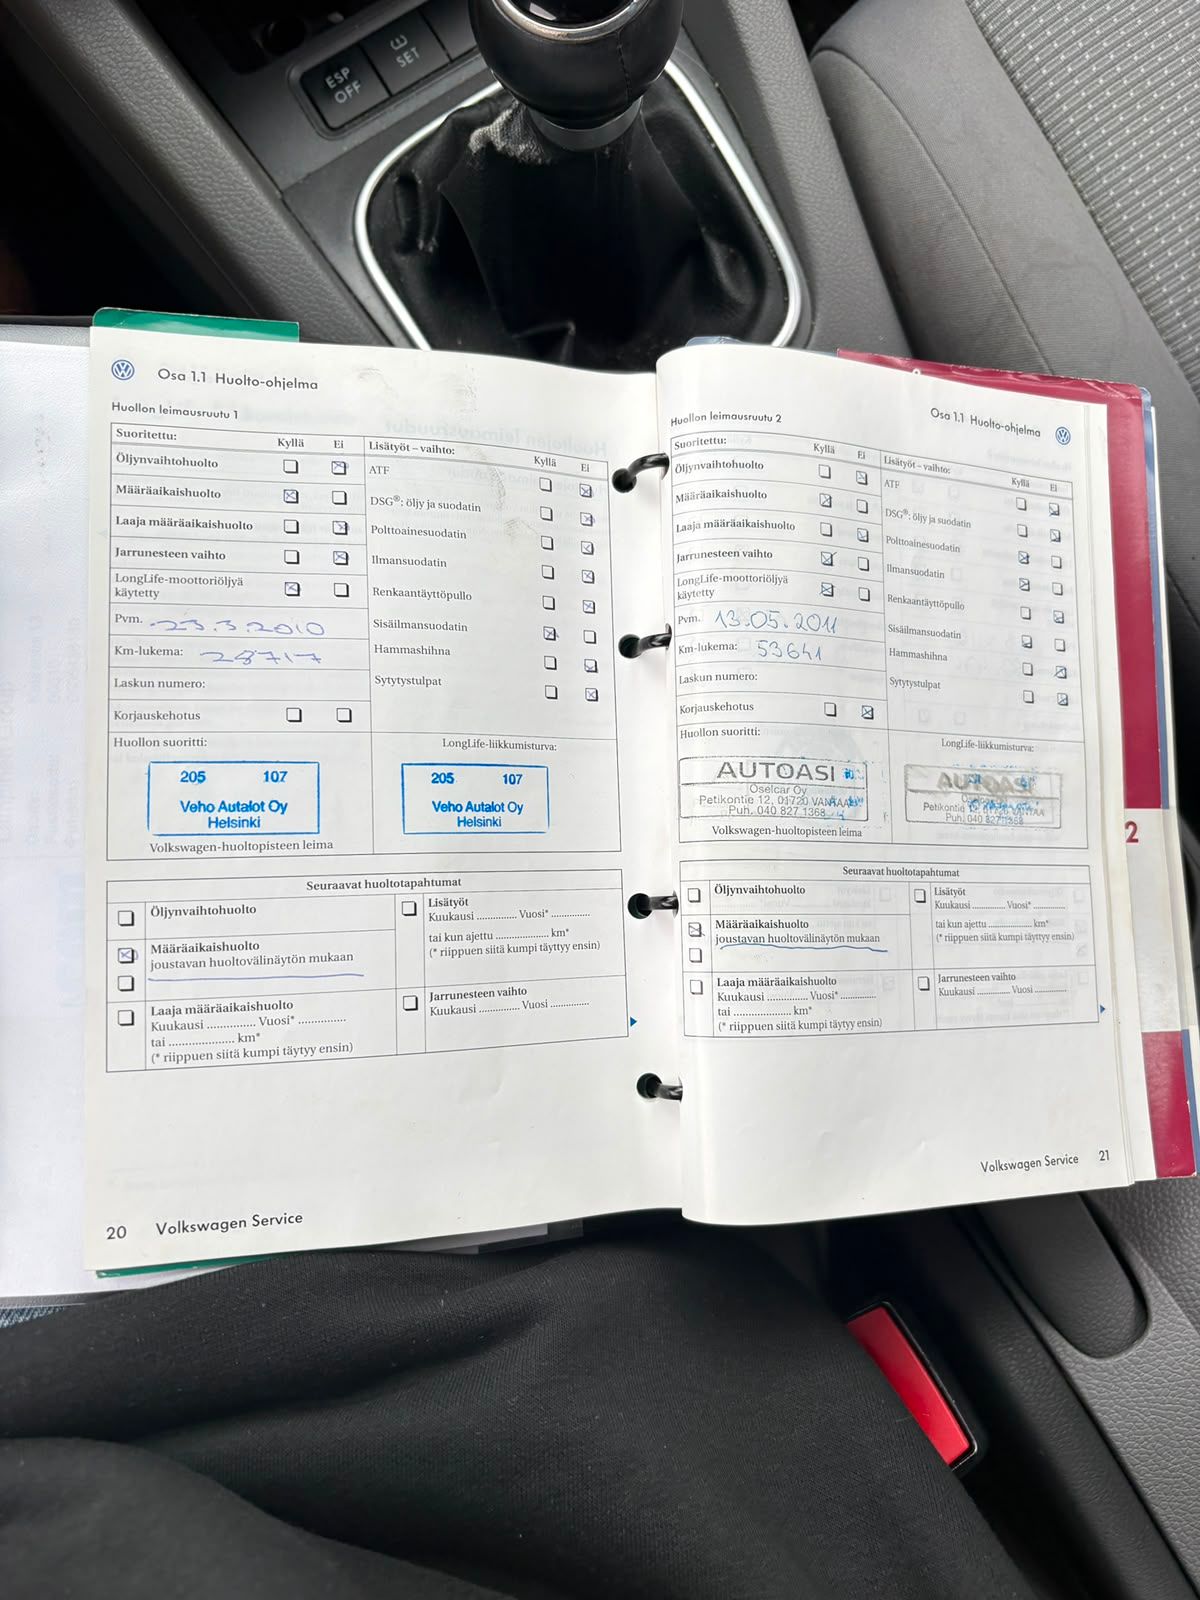 ESP
OFF
SET
Osa 1.1 Huolto-ohjelma
Huollon leimausruutu 1
Suoritettu:
Kyllä
Ei
Öljynvaihtohuolto
Määräaikaishuolto
Laaja määräaikaishuolto
Jarrunesteen vaihto
LongLife-moottoriöljyä
käytetty
Pvm. 23.3.2010
Km-lukema: 28717
Laskun numero:
Korjauskehotus
Lisätyöt – vaihto:
Kyllä
Ei
ATF
DSG®: öljy ja suodatin
Polttoainesuodatin
Ilmansuodatin
Renkaantäyttöpullo
Sisäilmansuodatin
Hammashihna
Sytytystulpat
Huollon suoritti:
205 107
Veho Autalot Oy
Helsinki
Volkswagen-huoltopisteen leima
LongLife-liikkumisturva:
205 107
Veho Autalot Oy
Helsinki
Seuraavat huoltotapahtumat
Öljynvaihtohuolto
Määräaikaishuolto
joustavan huoltovälinäytön mukaan
Laaja määräaikaishuolto
Kuukausi .............. Vuosi* ..............
tai .................... km*
(* riippuen siitä kumpi täytyy ensin)
Lisätyöt
Kuukausi ............. Vuosi* .............
tai kun ajettu .................... km*
(* riippuen siitä kumpi täytyy ensin)
Jarrunesteen vaihto
Kuukausi ............. Vuosi .............
20 Volkswagen Service
Osa 1.1 Huolto-ohjelma
Huollon leimausruutu 2
Suoritettu:
Kyllä
Ei
Öljynvaihtohuolto
Määräaikaishuolto
Laaja määräaikaishuolto
Jarrunesteen vaihto
LongLife-moottoriöljyä
käytetty
Pvm. 13.05.2011
Km-lukema: 53641
Laskun numero:
Korjauskehotus
Lisätyöt – vaihto:
Kyllä
Ei
ATF
DSG®: öljy ja suodatin
Polttoainesuodatin
Ilmansuodatin
Renkaantäyttöpullo
Sisäilmansuodatin
Hammashihna
Sytytystulpat
Huollon suoritti:
AUTOASI
Oselcar Oy
Petikontie 12, 01720 VANTAA
Puh. 040 827 1368
Volkswagen-huoltopisteen leima
LongLife-liikkumisturva:
AUTOASI
Petikontie 12, 01720 VANTAA
Puh. 040 827 1368
Seuraavat huoltotapahtumat
Öljynvaihtohuolto
Määräaikaishuolto
joustavan huoltovälinäytön mukaan
Laaja määräaikaishuolto
Kuukausi .............. Vuosi* ..............
tai .................... km*
(* riippuen siitä kumpi täytyy ensin)
Lisätyöt
Kuukausi ............. Vuosi* .............
tai kun ajettu .................... km*
(* riippuen siitä kumpi täytyy ensin)
Jarrunesteen vaihto
Kuukausi ............. Vuosi .............
Volkswagen Service 21
2